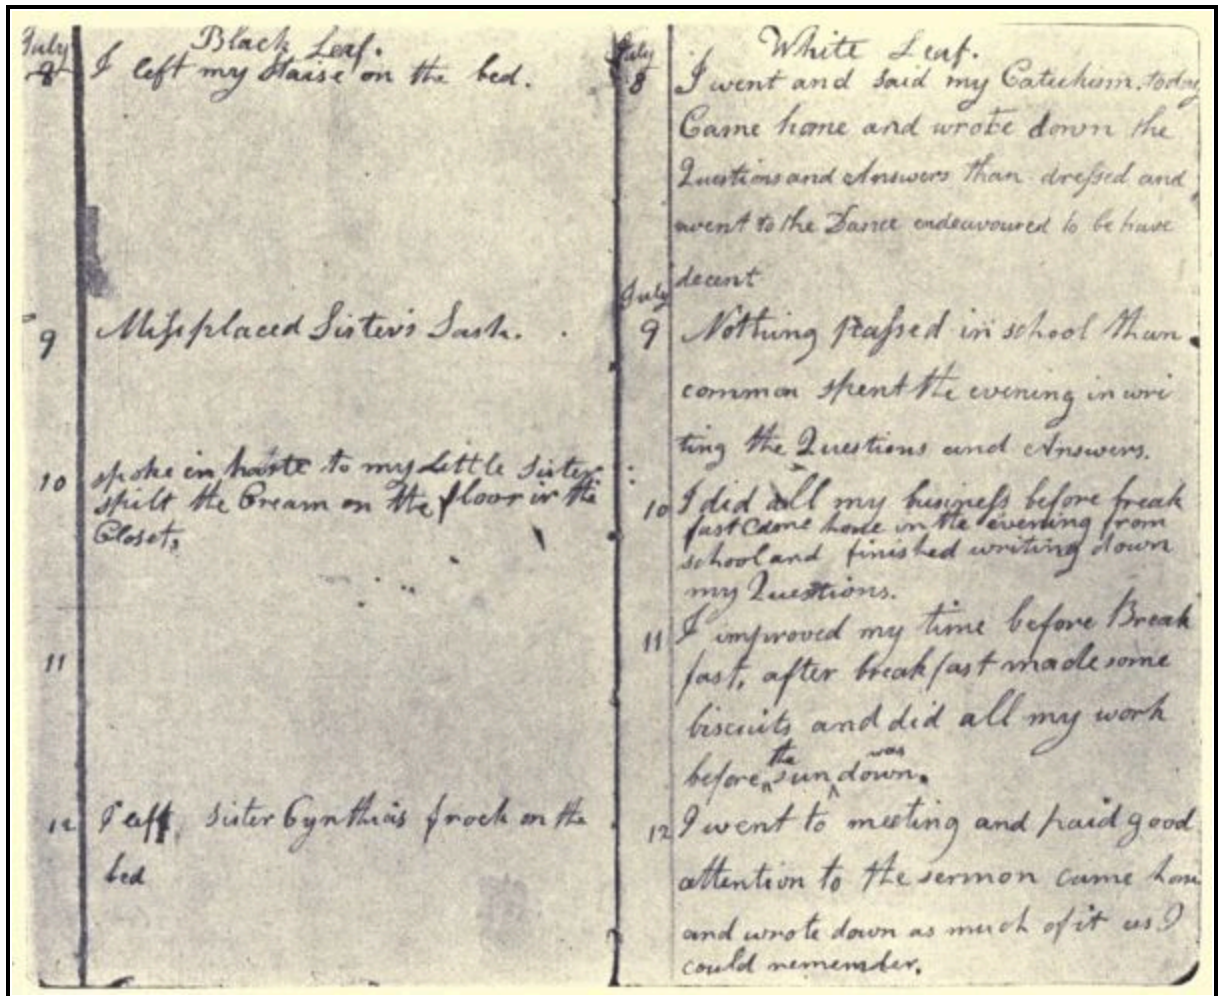 July
Black Leaf.
8 I left my Staise on the bed.
9 Missplaced Sister's Sash.
10 spoke in haste to my Little Sister
spilt the Cream on the floor in the
Closet,
11
12 I left Sister Cynthia's frock on the
bed
July
White Leaf.
8 I went and said my Catechism today
Came home and wrote down the
Questions and Answers than dressed and
went to the Dance endeavoured to be have
decent
July
9 Nothing passed in school than
common spent the evening in wri
ting the Questions and Answers.
10 I did all my business before break
fast Came home in the evening from
school and finished writing down
my Questions.
11 I improved my time before Break
fast, after breakfast made some
biscuits and did all my work
before the sun was down.
12 I went to meeting and paid good
attention to the sermon came home
and wrote down as much of it as I
could remember.